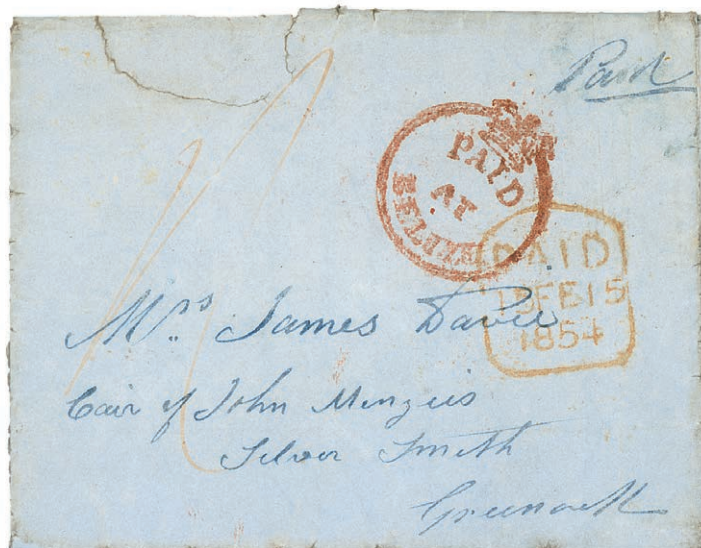 Paid
PAID
AT
BELIZE
PAID
15FE15
1854
Mrs James Davie
Cair of John Menzeis
Silver Smith
Greenock